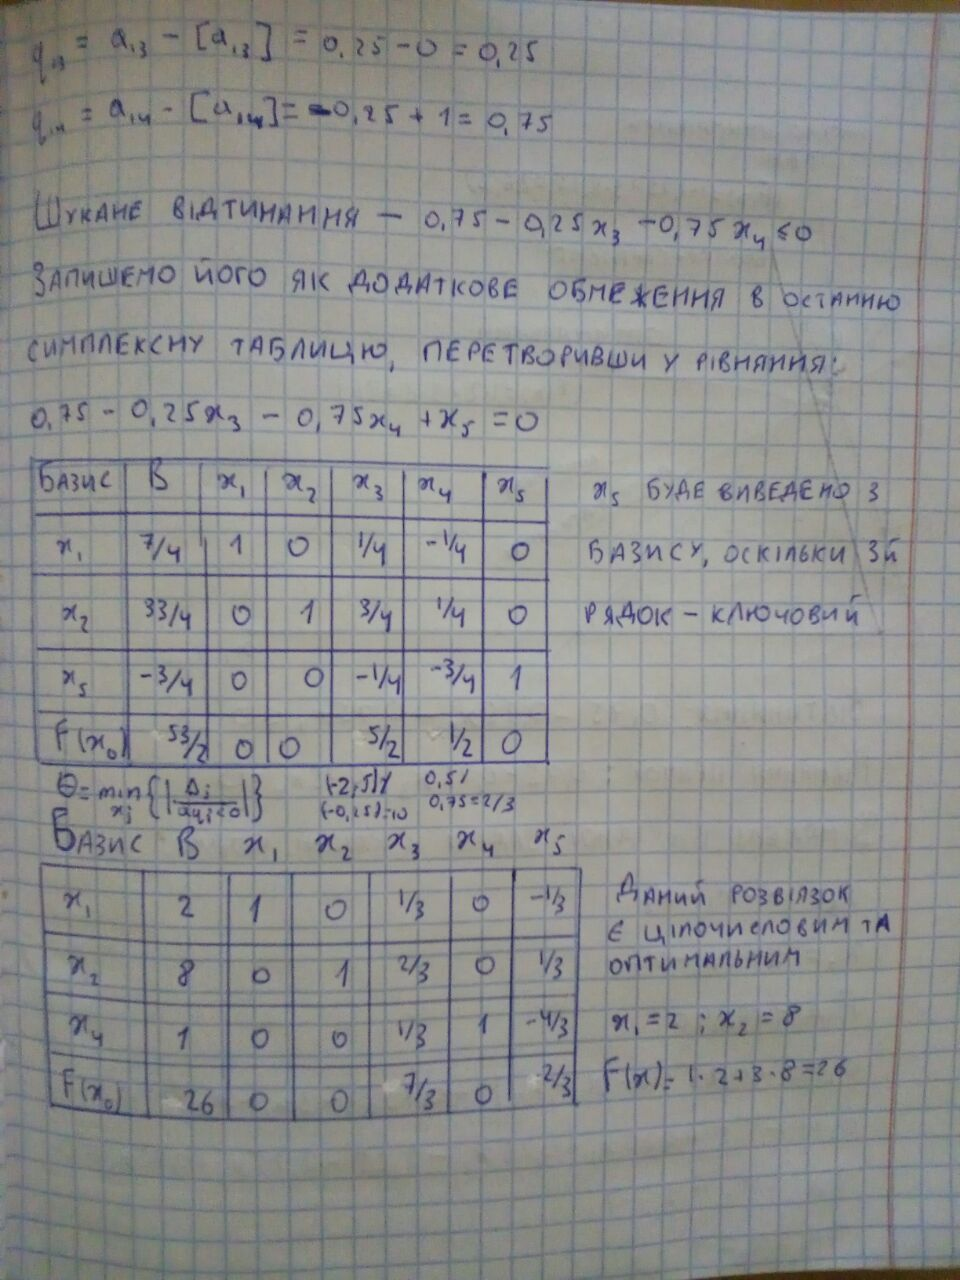 q₁₃ = a₁₃ - [a₁₃] = 0,25 - 0 = 0,25
q₁₄ = a₁₄ - [a₁₄] = -0,25 + 1 = 0,75
Шукане відтинання - 0,75 - 0,25x₃ - 0,75x₄ ≤ 0
Запишемо його як додаткове обмеження в останню
симплексну таблицю, перетворивши у рівняння:
0,75 - 0,25x₃ - 0,75x₄ + x₅ = 0
Базис B x₁ x₂ x₃ x₄ x₅
x₁ 7/4 1 0 1/4 -1/4 0
x₂ 33/4 0 1 3/4 1/4 0
x₅ -3/4 0 0 -1/4 -3/4 1
F(x₀) 53/2 0 0 5/2 1/2 0
x₅ буде виведено з
базису, оскільки 3й
рядок - ключовий
Θ = min
0,75 = 2/3
Базис B x₁ x₂ x₃ x₄ x₅
x₁ 2 1 0 1/3 0 -1/3
x₂ 8 0 1 2/3 0 1/3
x₄ 1 0 0 1/3 1 -4/3
F(x₀) 26 0 0 7/3 0 2/3
Даний розв'язок
є цілочисловим та
оптимальним
x₁ = 2 ; x₂ = 8
F(x) = 1·2+3·8=26